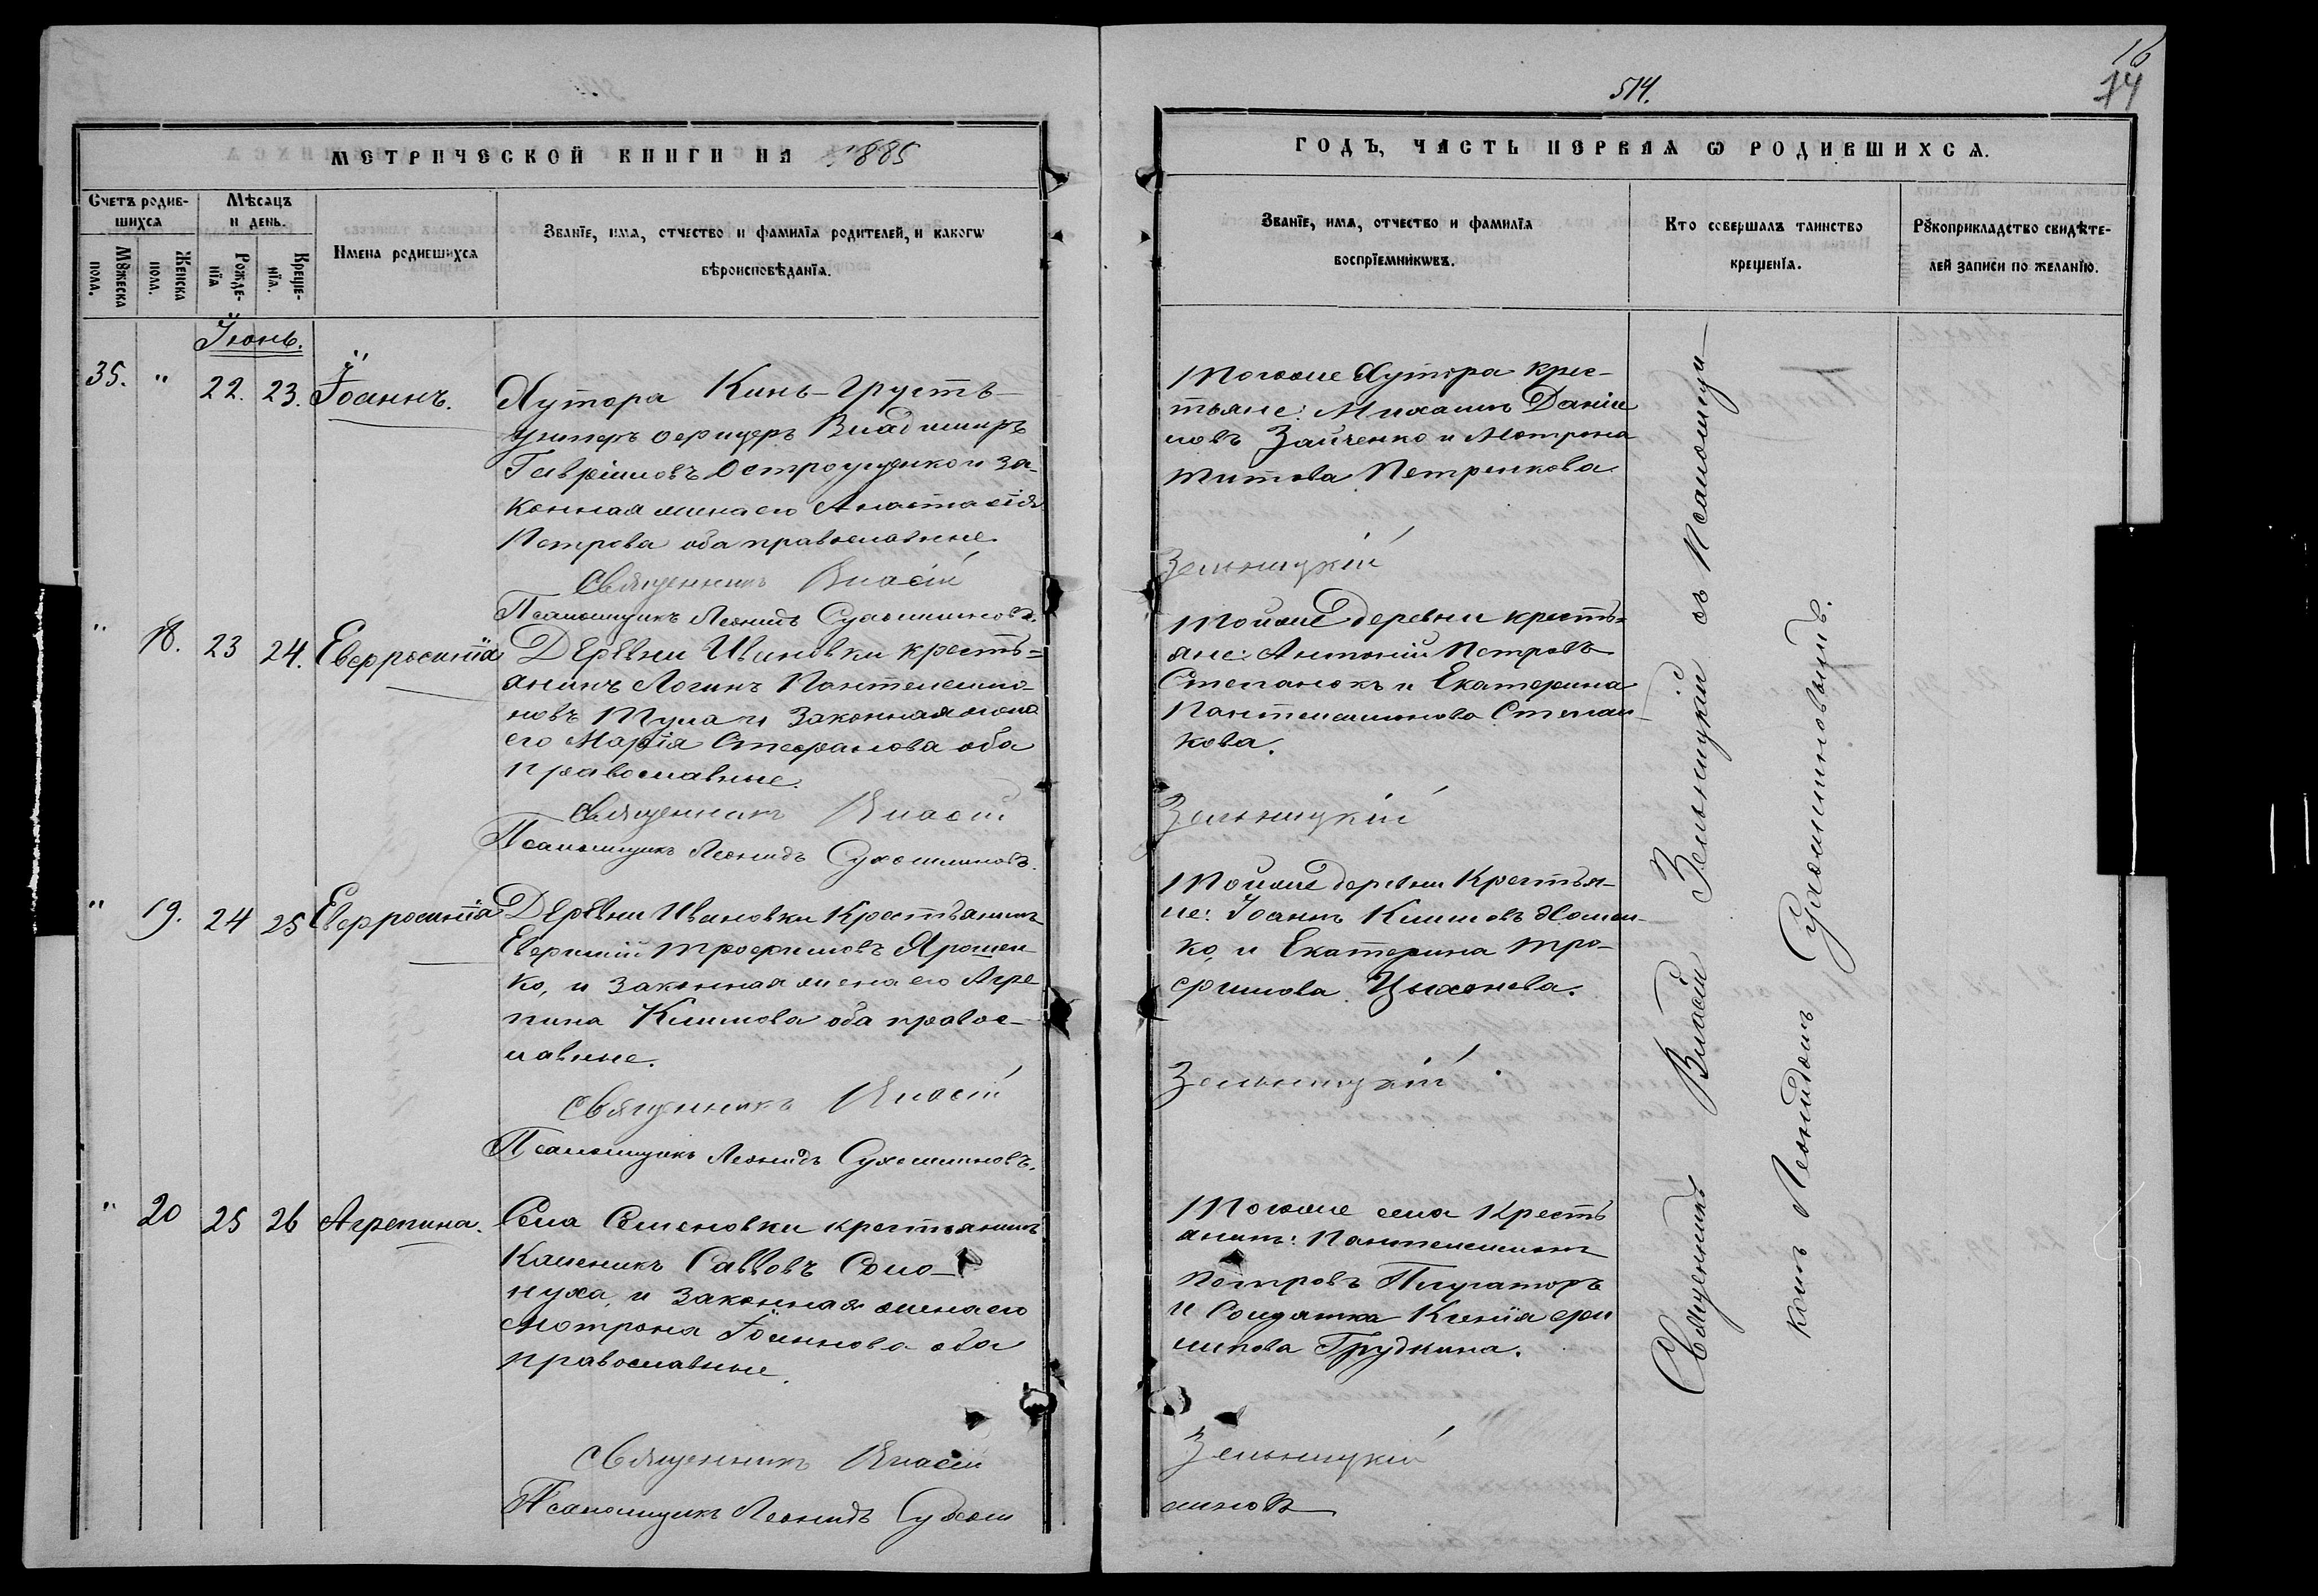 16
14
514.
МЕТРИЧЕСКОЙ КНИГИ НА 1885
ГОДЪ, ЧАСТЬ ПЕРВАѦ Ѡ РОДИВШИХСѦ.
Счетъ родив-
шихсѧ
Мꙋжеска
пола.
Женска
пола.
Мѣсѧцъ
и день.
Рожде-
нїѧ
Креще-
нїѧ.
Имена родившихсѧ
Званїе, имѧ, отчество и фамилїѧ родителей, и какогѡ
вѣроисповѣданїѧ.
Званїе, имѧ, отчество и фамилїѧ
воспрїемникѡвъ.
Кто совершалъ таинство
крещенїѧ.
Рꙋкоприкладство свидѣте-
лей записи по желанїю.
Іюнь.
35. " 22. 23. Іоаннъ.
Хутора Кинь-Грусть
унтеръ офицеръ Владимиръ
Гавріиловъ Остроущенко и за-
конная жена его Анастасія
Петрова оба православные
Священникъ Власій
Псаломщикъ Леонидъ Сухомлиновъ.
Тогоже Хутора крес-
тьяне: Михаилъ Даніи
ловъ Зайченко и Мотрона
Титова Петренкова
Зельницкій
" 18. 23 24. Евфросинія
Деревни Ивановки кресть=
янинъ Логинъ Пантелеимо-
новъ Тула и Законная жена
его Марія Стефанова оба
православные.
Священникъ Власій
Псаломщикъ Леонидъ Сухомлиновъ.
Тойже деревни кресть=
яне: Антоній Петровъ
Степанокъ и Екатерина
Пантелеимонова Степан-
кова.
Зельницкій
" 19. 24 25 Евфросинія
Деревни Ивановки Крестьянинъ
Евфимій Трофимовъ Ярошен-
ко, и Законная жена его Агре
пина Климова оба правос-
лавные.
Священникъ Власій
Псаломщикъ Леонидъ Сухомлиновъ.
Тойже деревни Крестья-
не: Іоаннъ Климовъ Хомен-
ко, и Екатерина Тро-
фимова Цыхонева.
Зельницкій
" 20 25 26 Агрепина.
Села Семеновки крестьянинъ
Каленикъ Саввовъ Соло-
нуха, и Законная жена его
Мотрона Іоаннова оба
православные.
Священникъ Власій
Псаломщикъ Леонидъ Сухом
Тогоже села Кресть
янинъ: Пантелеимонъ
Петровъ Плугаторъ
и Солдатка Ксенія Фи
липова Грудкина.
Зельницкій
линовъ
Священникъ Власій Зельницкій съ Псаломщи-
комъ Леонидомъ Сухомлиновымъ.